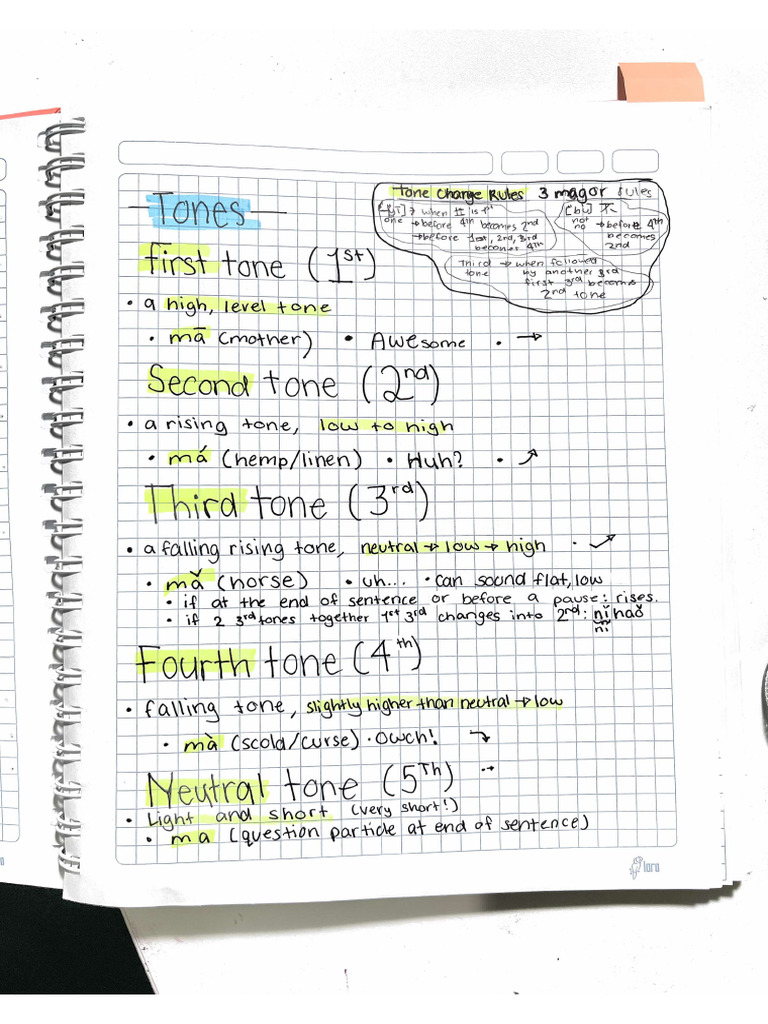 Tones
Tone Change Rules 3 magor rules
one → before 4th becomes 2nd
→ before 1st, 2nd, 3rd
becomes 4th
[bu] 不
not
no → before 4th
becomes
2nd
Third → when followed
tone by another 3rd
first 3rd becomes
2nd tone
first tone (1st)
• a high, level tone
• mā (mother) • Awesome • →
Second tone (2nd)
• a rising tone, low to high
• má (hemp/linen) • Huh? • ↗
Third tone (3rd)
• a falling rising tone, neutral → low → high •
• mǎ (horse) • uh... • can sound flat, low
• if at the end of sentence or before a pause: rises.
• if 2 3rd tones together 1st 3rd changes into 2nd: nǐ haǒ
ní
Fourth tone (4th)
• falling tone, slightly higher than neutral → low
• mà (scold/curse) • Owch! ↘
Neutral tone (5Th)
• Light and short (very short!)
• ma (question particle at end of sentence)
loro